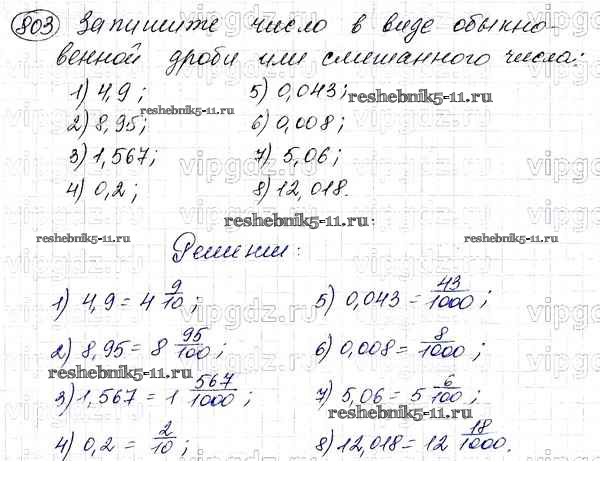 803 Запишите число в виде обыкно-
венной дроби или смешанного числа:
1) 4,9; 5) 0,043;
reshebnik5-11.ru reshebnik5-11.ru
2) 8,95; 6) 0,008;
3) 1,567; 7) 5,06;
4) 0,2; 8) 12,018.
reshebnik5-11.ru:
reshebnik5-11.ru reshebnik5-11.ru
Решение:
1) 4,9 = 4 9/10; 5) 0,043 = 43/1000;
2) 8,95 = 8 95/100; 6) 0,008 = 8/1000;
reshebnik5-11.ru
3) 1,567 = 1 567/1000; 7) 5,06 = 5 6/100;
reshebnik5-11.ru
4) 0,2 = 2/10; 8) 12,018 = 12 18/1000.
vipgdz.ru